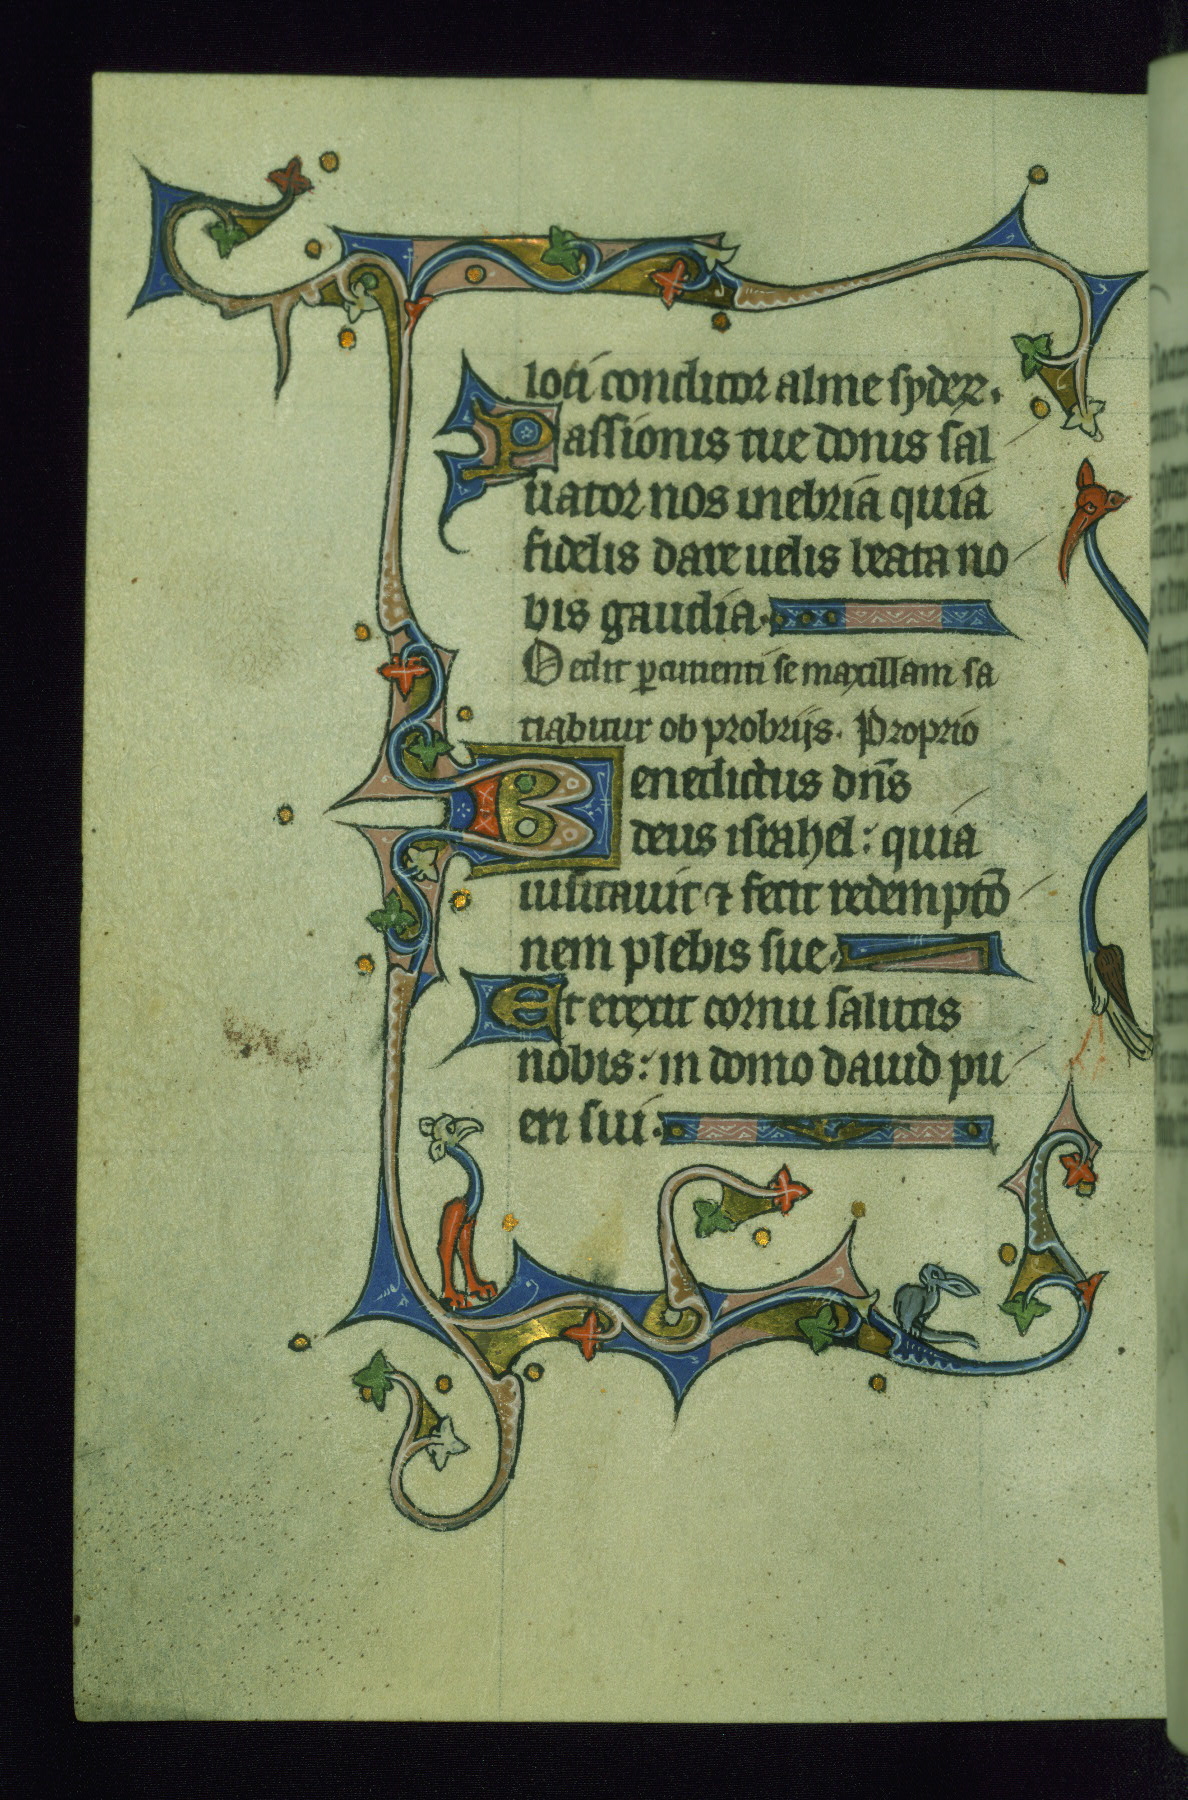 loti conditor alme syderz.
Passionis tue donis sal
uator nos inebria quia
fidelis dare uelis beata no
bis gaudia.
Dedit percutienti se maxillam sa
tiabitur ob probrijs. Proprio
Benedictus dn̄s
deus israhel: quia
uisitauit ⁊ fecit redemptō
nem plebis sue
Et erexit cornu salutis
nobis: in domo dauid pu
eri sui.